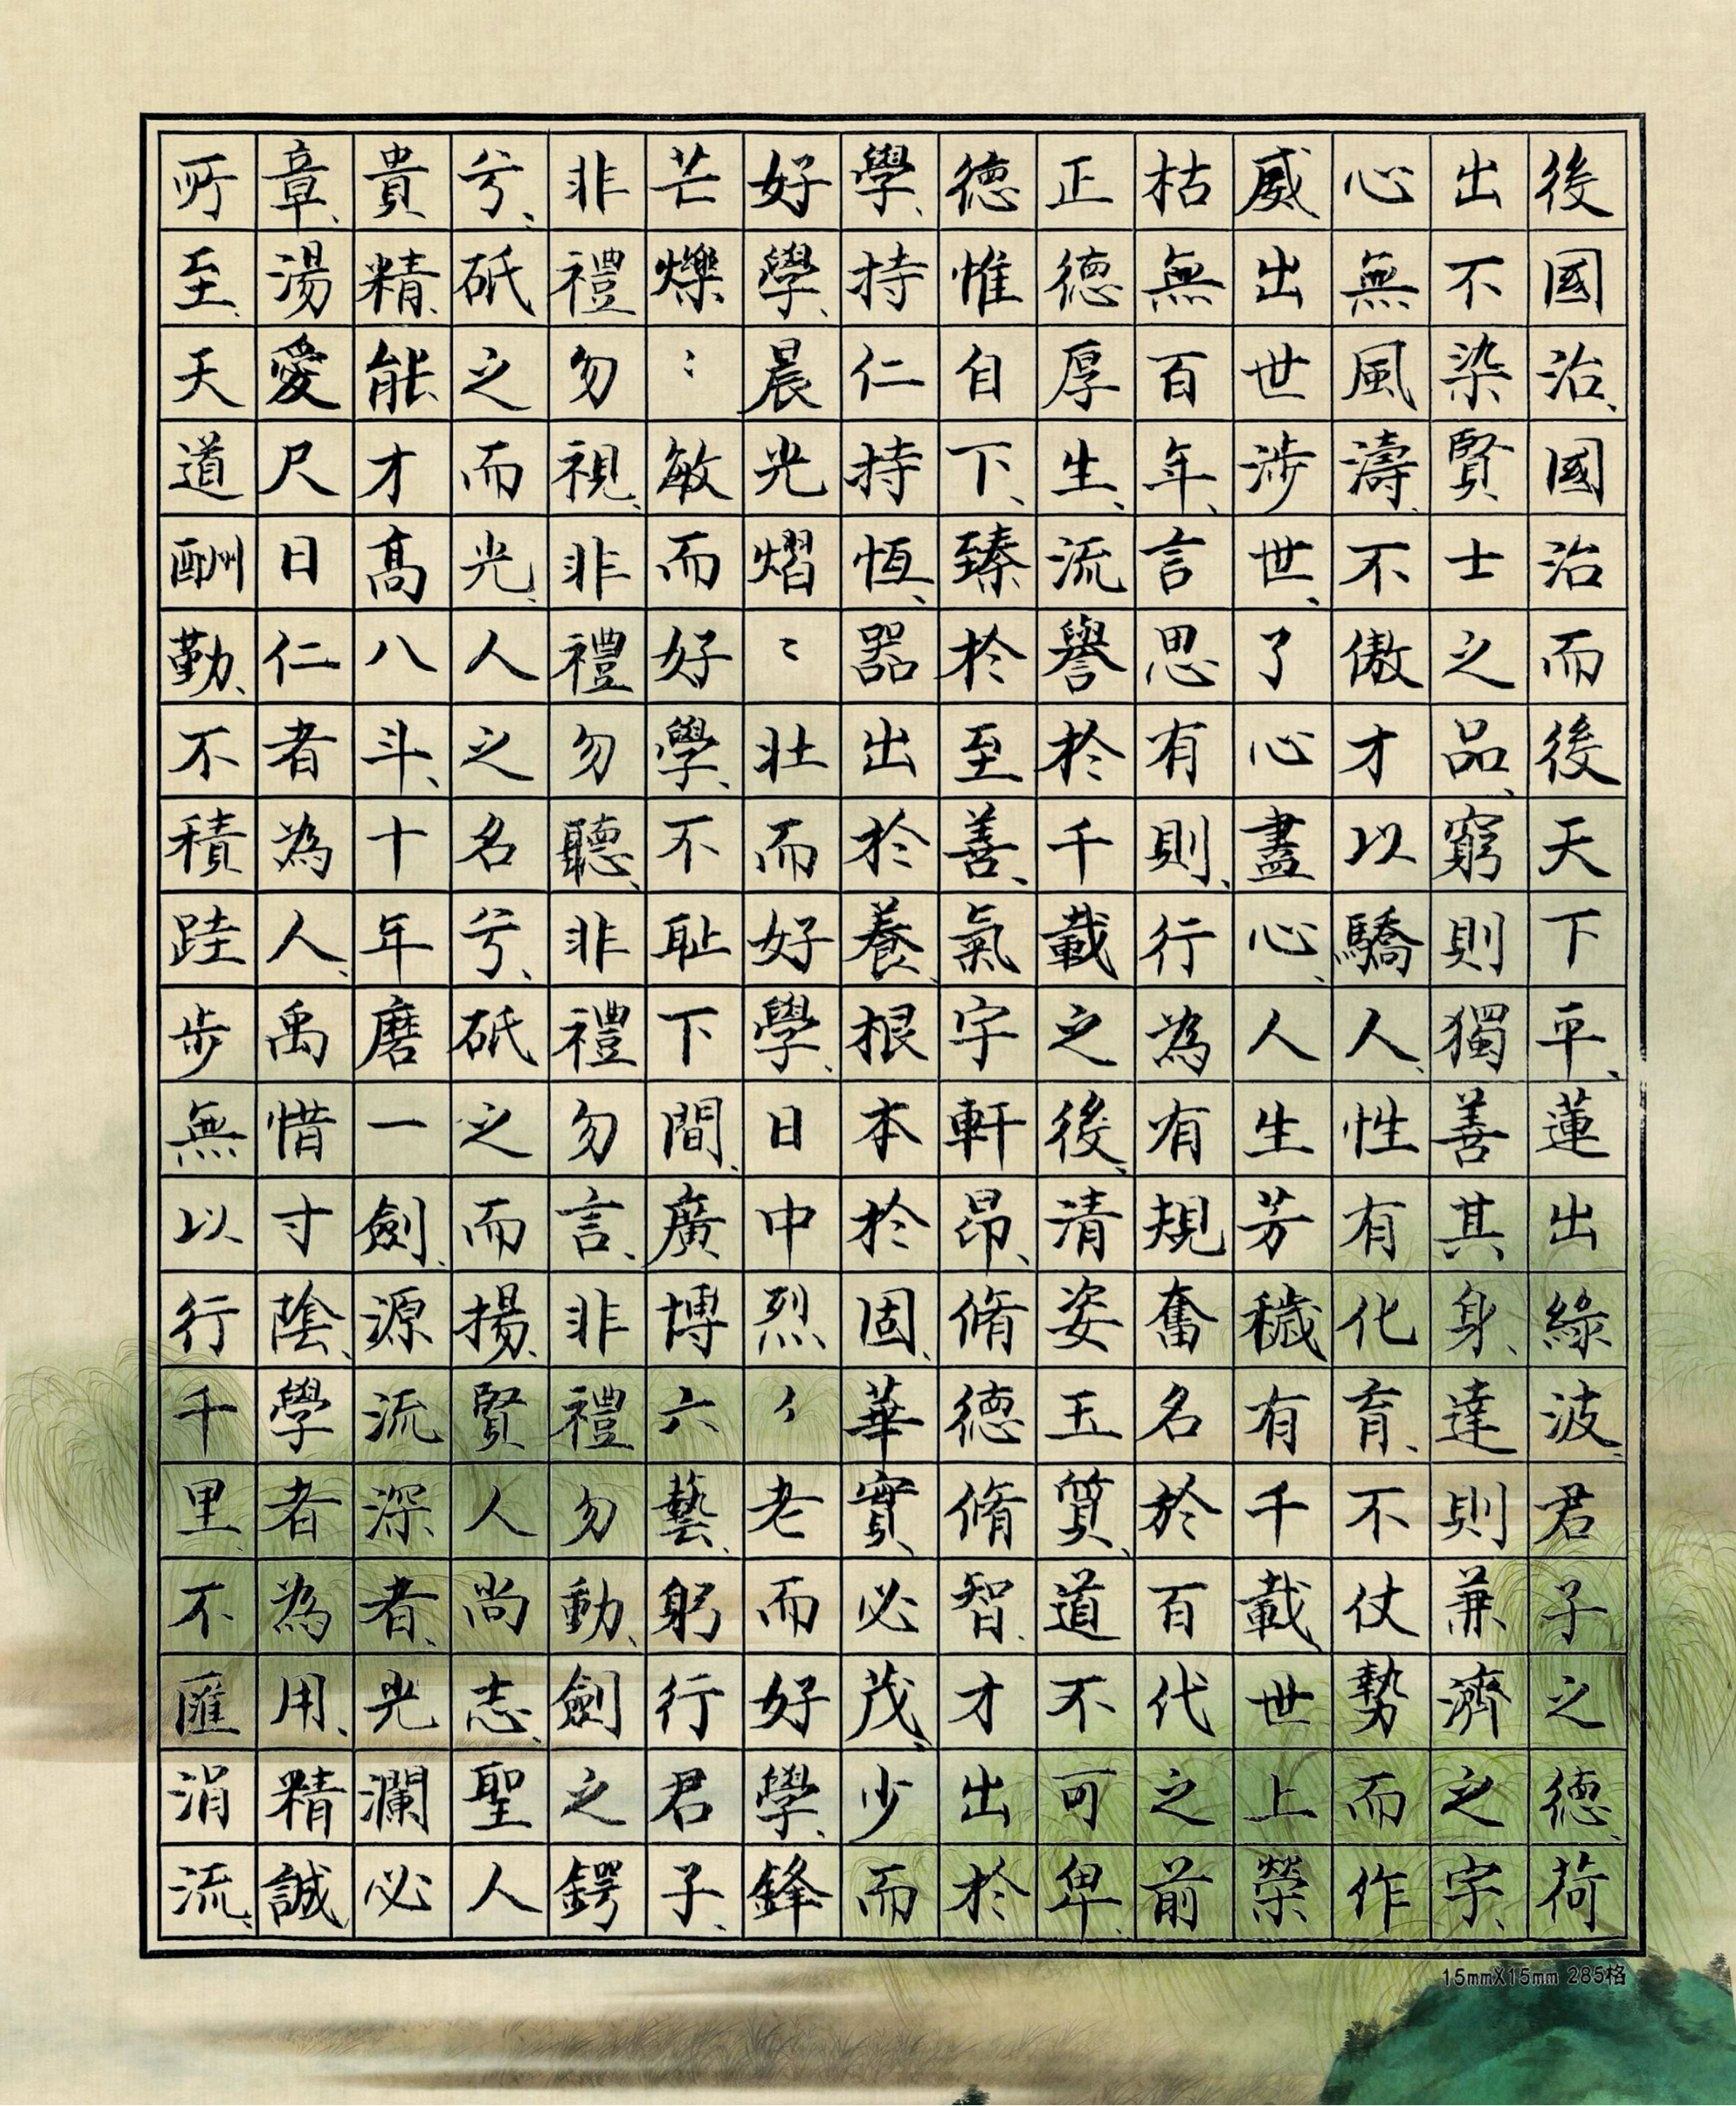 後國治、國治而後天下平、蓮出綠波、君子之德、荷
出不染賢士之品、窮則獨善其身、達則兼濟之宇、
心無風濤、不傲才以驕人、性有化育、不仗勢而作
威出世涉世、了心盡心、人生芳穢有千載世上榮
枯無百年、言思有則、行為有規奮名於百代之前
正德厚生、流譽於千載之後、清姿玉質、道不可卑、
德惟自下、臻於至善、氣宇軒昂、脩德脩智、才出於
學、持仁持恆、器出於養、根本於固、華實必茂、少而
好學、晨光熠〻壯而好學、日中烈〻老而好學、鋒
芒爍〻敏而好學、不恥下問、廣博六藝、躬行君子、
非禮勿視、非禮勿聽、非禮勿言、非禮勿動、劍之鍔
兮、砥之而光、人之名兮、砥之而揚、賢人尚志、聖人
貴精、能才高八斗、十年磨一劍、源流深者、光瀾必
章、湯愛尺日仁者為人、禹惜寸陰、學者為用、精誠
所至、天道酬勤、不積跬步無以行千里、不匯涓流、
15mmX15mm 285格